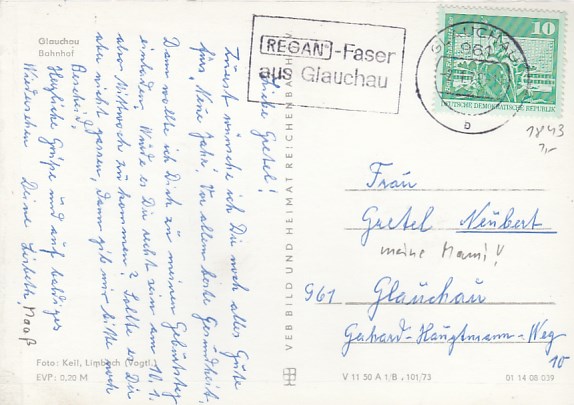 Glauchau
Bahnhof
Liebe Gretel!
Zuerst wünsche ich Dir noch alles Gute
fürs Neue Jahr. Vor allem beste Gesundheit.
Dann wollte ich Dich zu meinem Geburtstag
einladen. Würde es Dir recht sein am 10.1.
also Mittwoch zu kommen? Sollte es Dir
aber nicht passen, dann gib mir bitte noch
Bescheid.
Herzliche Grüße und auf baldiges
Wiedersehen Deine Lisbeth Maaß
Foto: Keil, Limbach (Vogtl.)
EVP: 0,20 M
VEB BILD UND HEIMAT REICHENBACH
REGAN®-Faser
aus Glauchau
GLAUCHAU
961
b
10
DEUTSCHE DEMOKRATISCHE REPUBLIK
1843
Frau
Gretel Neubert
meine Mami!
961 Glauchau
Gerhard-Hauptmann-Weg
10
V 11 50 A 1/B , 101/73
01 14 08 039